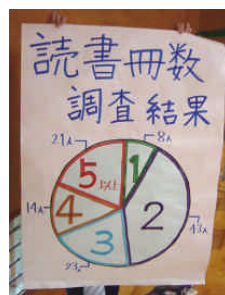 読書冊数
調査結果
21人
8人
5以上
1
14人
4
2
43人
3
23人